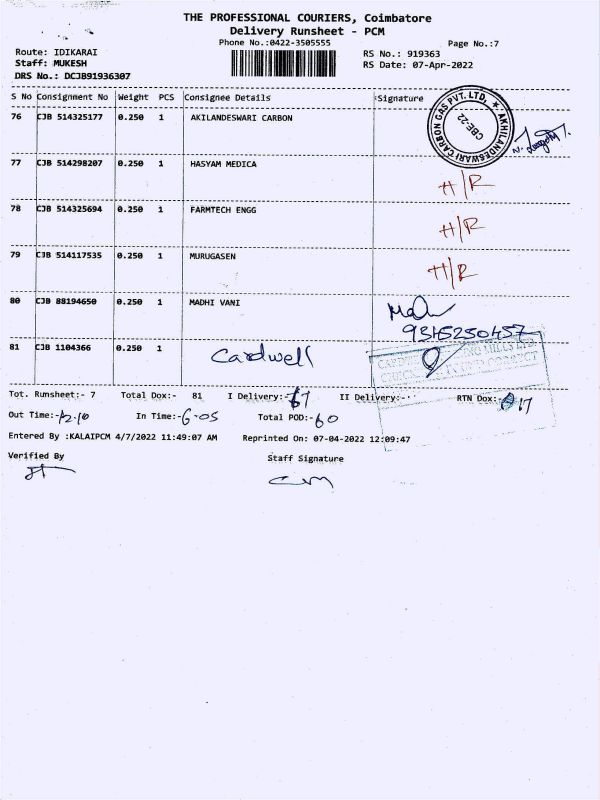 THE PROFESSIONAL COURIERS, Coimbatore
Delivery Runsheet - PCM
Phone No.:0422-3505555 Page No.:7
Route: IDIKARAI RS No.: 919363
Staff: MUKESH RS Date: 07-Apr-2022
DRS No.: DCJB91936307
S No Consignment No Weight PCS Consignee Details Signature
76 CJB 514325177 0.250 1 AKILANDESWARI CARBON
AKHILANDESWARI CARBON GAS PVT. LTD, ★
CBE-22
77 CJB 514298207 0.250 1 HASYAM MEDICA H/R
78 CJB 514325694 0.250 1 FARMTECH ENGG H/R
79 CJB 514117535 0.250 1 MURUGASEN H/R
80 CJB 88194650 0.250 1 MADHI VANI
9345250457
81 CJB 1104366 0.250 1 Cardwell
Tot. Runsheet:- 7 Total Dox:- 81 I Delivery:- II Delivery:- RTN Dox:- 17
Out Time:-12.10 In Time:-6.05 Total POD:-60
Entered By :KALAIPCM 4/7/2022 11:49:07 AM Reprinted On: 07-04-2022 12:09:47
Verified By Staff Signature